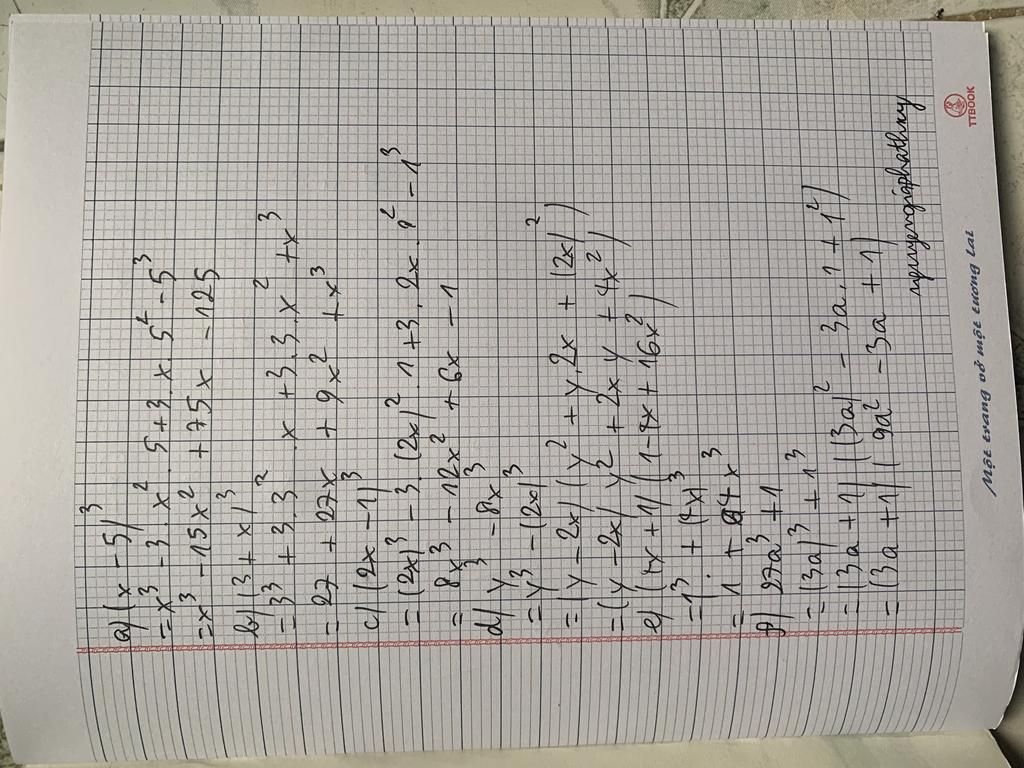 a) (x - 5)³
= x³ - 3 . x² . 5 + 3 . x . 5² - 5³
= x³ - 15x² + 75x - 125
b) (3 + x)³
= 3³ + 3 . 3² . x + 3 . 3 . x² + x³
= 27 + 27x + 9x² + x³
c) (2x - 1)³
= (2x)³ - 3 . (2x)² . 1 + 3 . 2x . 1² - 1³
= 8x³ - 12x² + 6x - 1
d) y³ - 8x³
= y³ - (2x)³
= (y - 2x) (y² + y . 2x + (2x)²)
= (y - 2x) (y² + 2xy + 4x²)
e) (4x + 1) (1 - 4x + 16x²)
= 1³ + (4x)³
= 1 + 64x³
f) 27a³ + 1
= (3a)³ + 1³
= (3a + 1) ((3a)² - 3a . 1 + 1²)
= (3a + 1) (9a² - 3a + 1)
Một trang vở một tương lai
TTBOOK